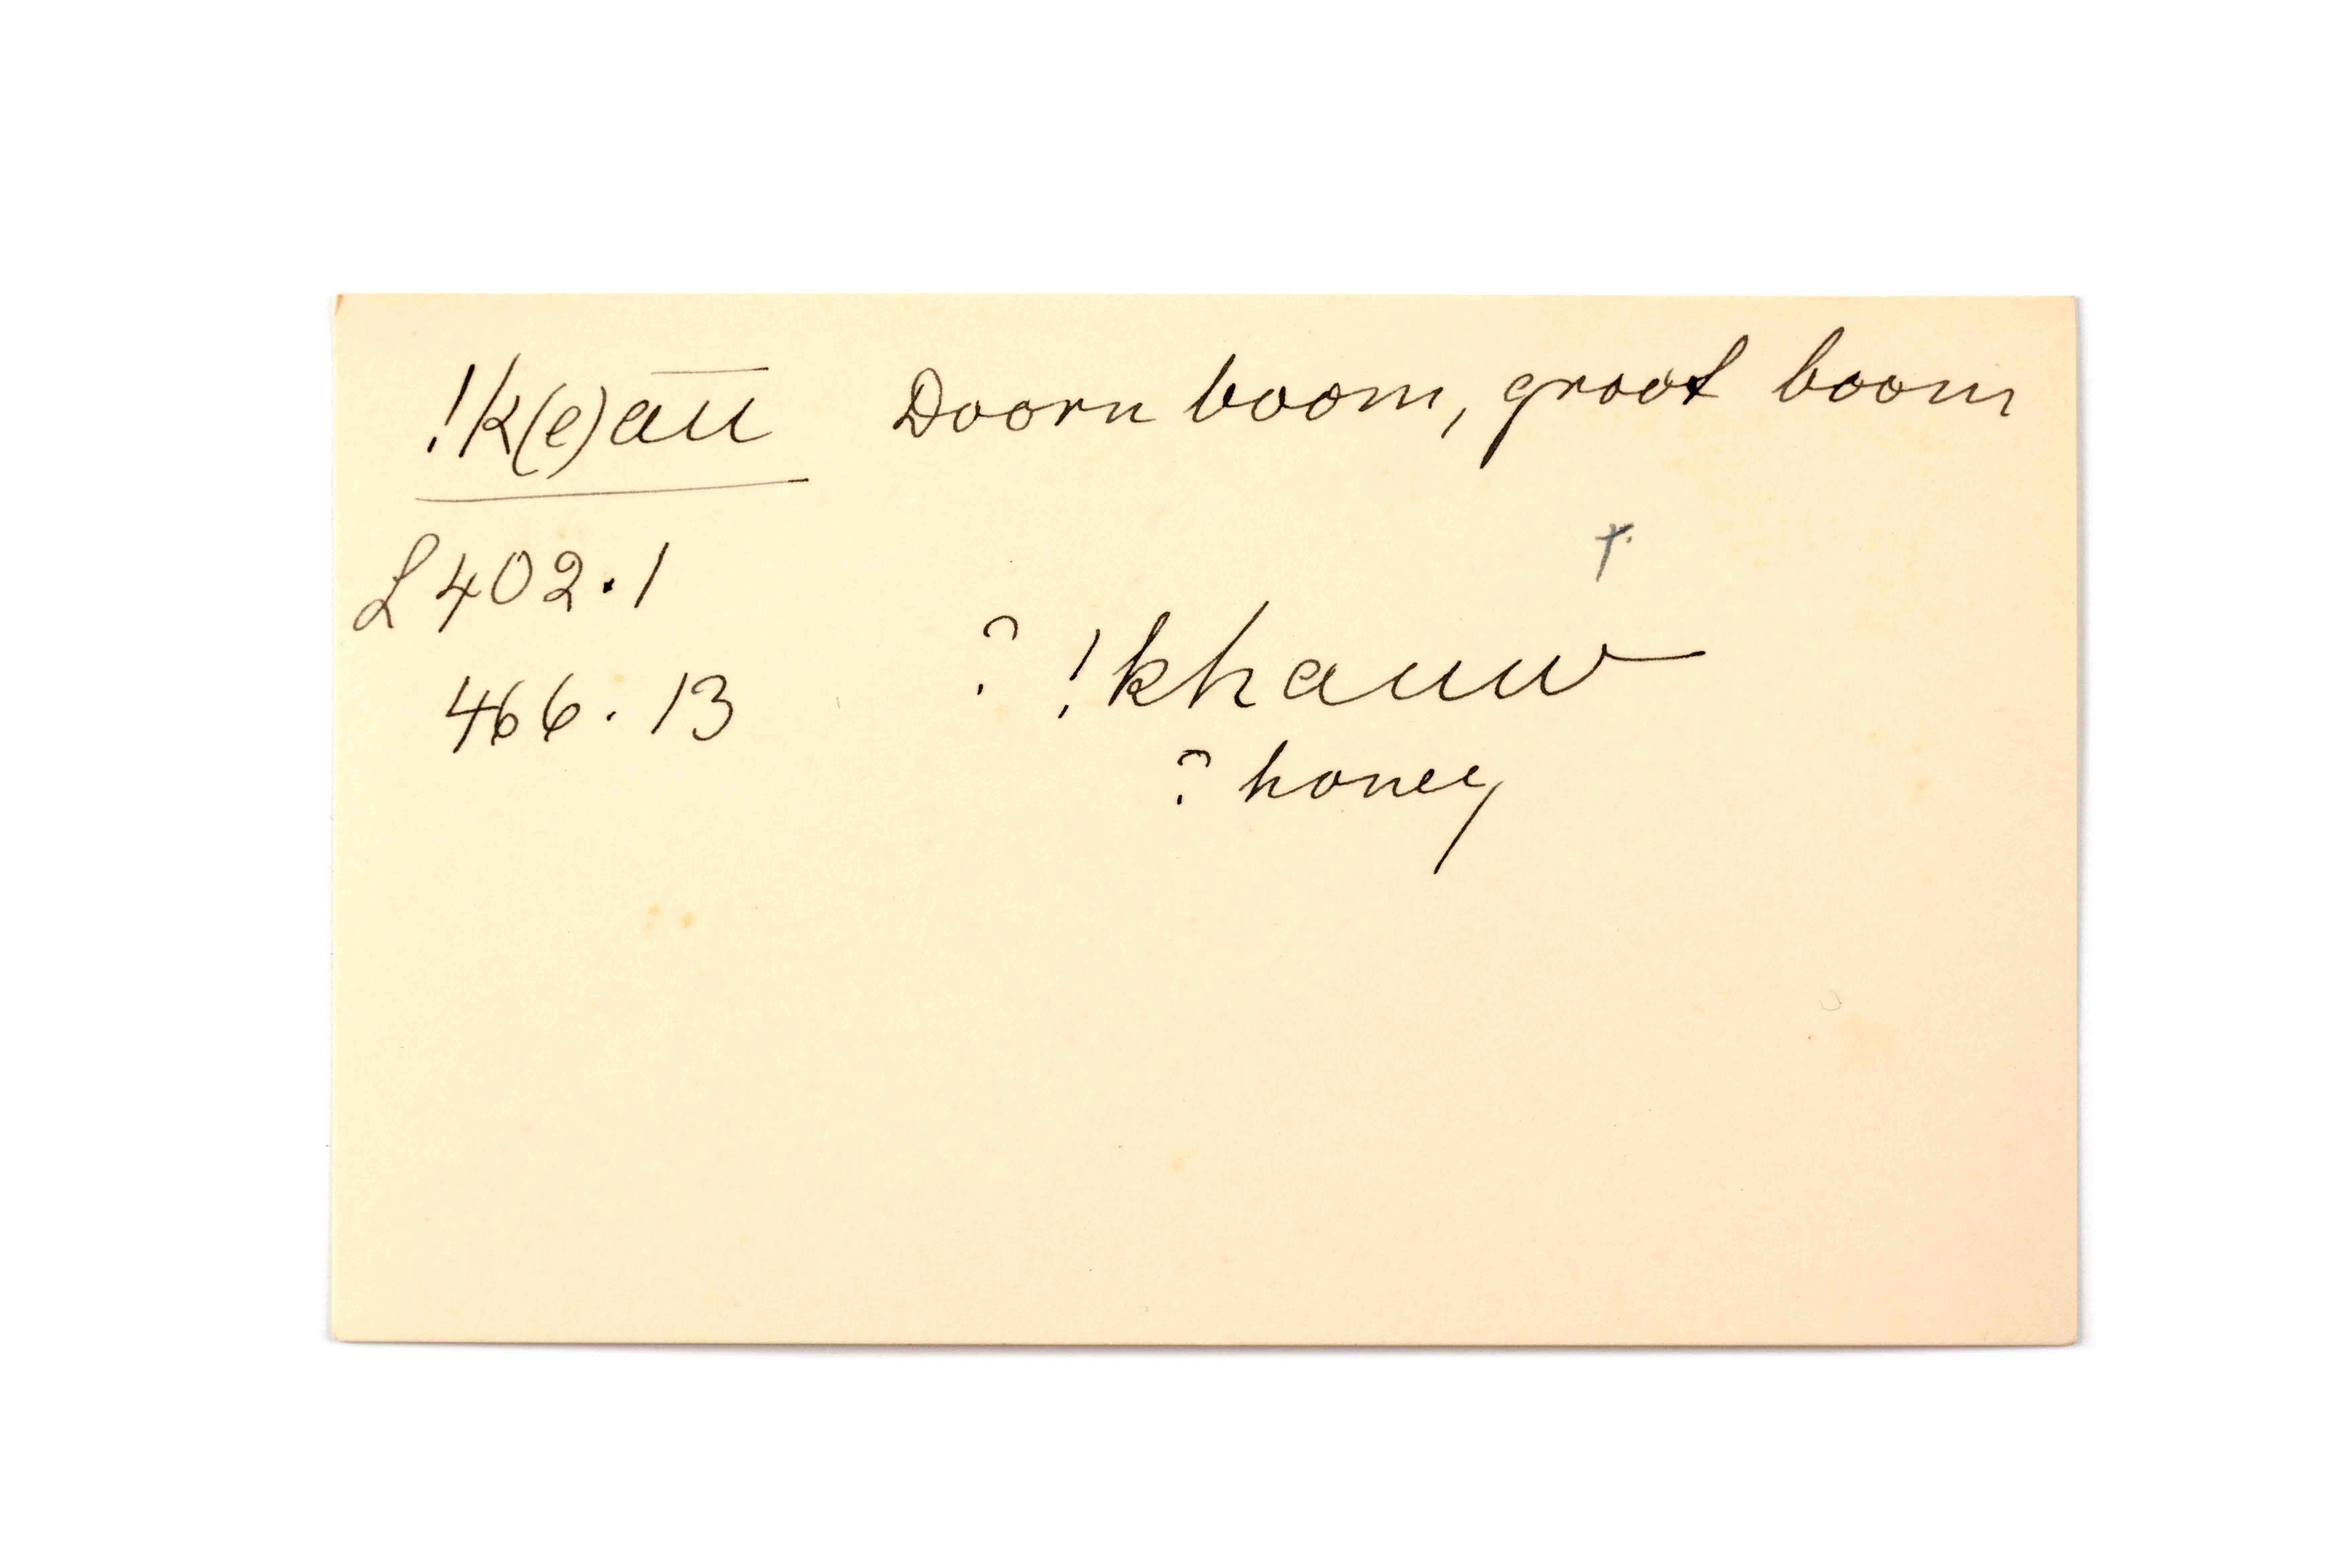 !k(e)a͞u Doorn boom, groot boom
L 402.1
466.13
? !khauw
? honey